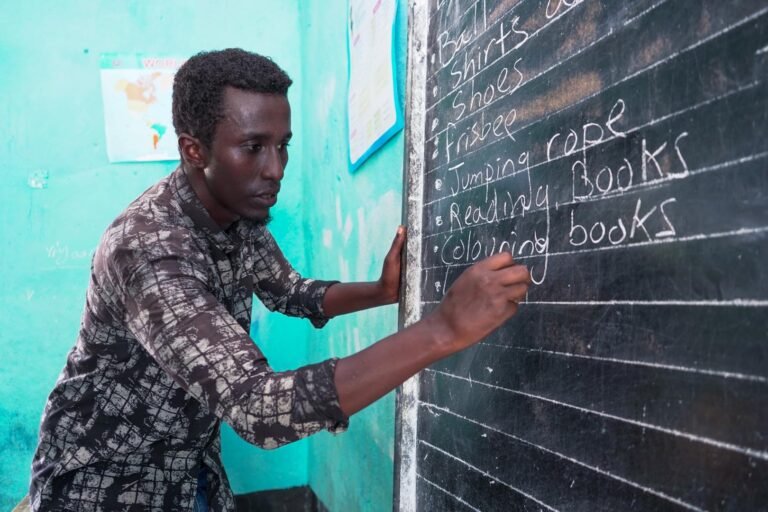 WORL
Ball
• Shirts
• Shoes
• Frisbee
• Jumping rope
• Reading Books
• Colouring books